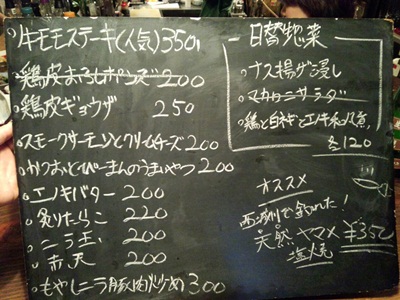 牛モモステーキ(人気)350
鶏皮おろしポンズ200
鶏皮ギョウザ 250
スモークサーモンとクリームチーズ200
かつおとぴーまんのうまいやつ200
エノキバター 200
炙りたらこ 220
ニラ玉 200
赤天 200
もやしニラ豚肉炒め300
日替惣菜
ナス揚げ浸し
マカロニサラダ
鶏と白ネギとエノキ
各120
オススメ
で釣れた!
天然ヤマメ ¥350
塩焼